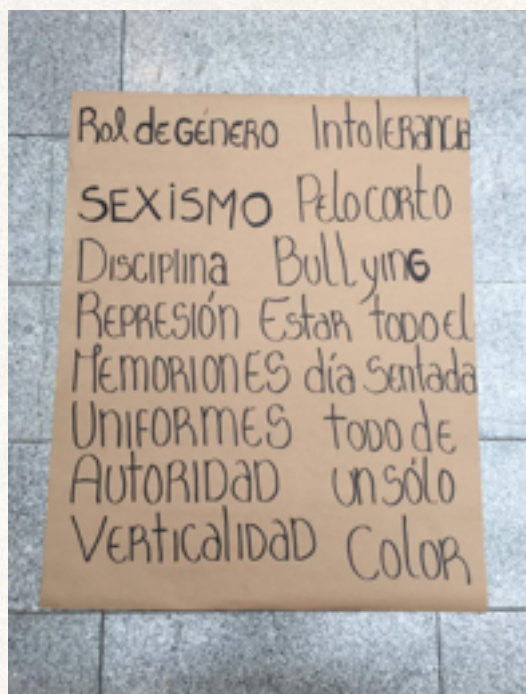 Rol de GÉNERO Intolerancia
SEXiSMO Pelo corto
Disciplina Bullying
REPRESIÓN Estar todo el
MEMORIONES día Sentada
UNIFORMES todo de
AUTORIDAD un sólo
VERTICALIDAD Color